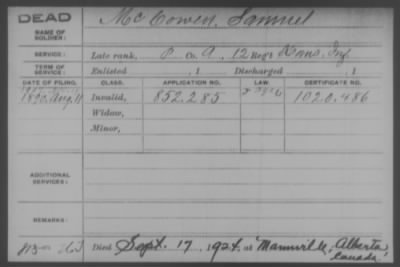 DEAD
NAME OF SOLDIER: McCowen, Samuel
SERVICE: Late rank, P Co. A, 12 Reg't Kans Inf.
TERM OF SERVICE: Enlisted , 1 Discharged , 1
DATE OF FILING. CLASS. APPLICATION NO. LAW. CERTIFICATE NO.
1890. Aug. 11 Invalid, 852.285 1020.486
Widow,
Minor,
ADDITIONAL SERVICES:
REMARKS:
Died Sept. 17, 1924, at Mannville, Alberta
Canada